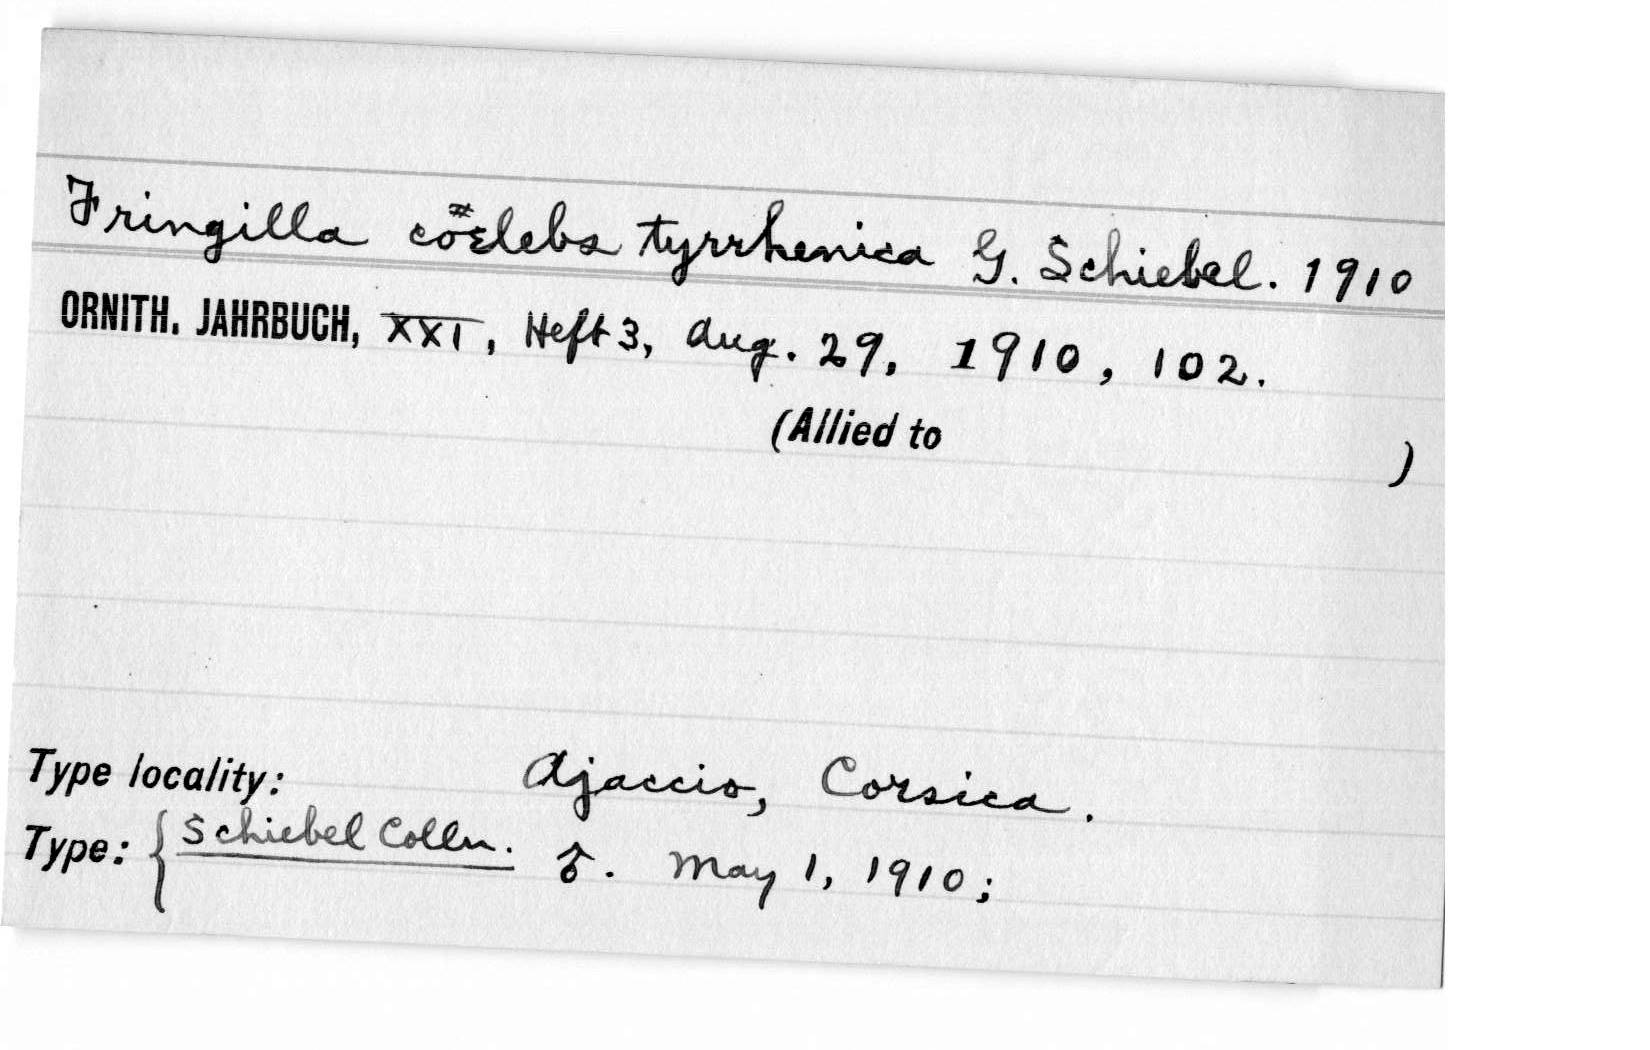 Fringilla cöelebs tyrrhenica G. Schiebel. 1910
ORNITH. JAHRBUCH, XXI, Heft 3, Aug. 29, 1910, 102.
(Allied to )
Type locality: Ajaccio, Corsica.
Type: { Schiebel Colln. ♂. May 1, 1910;